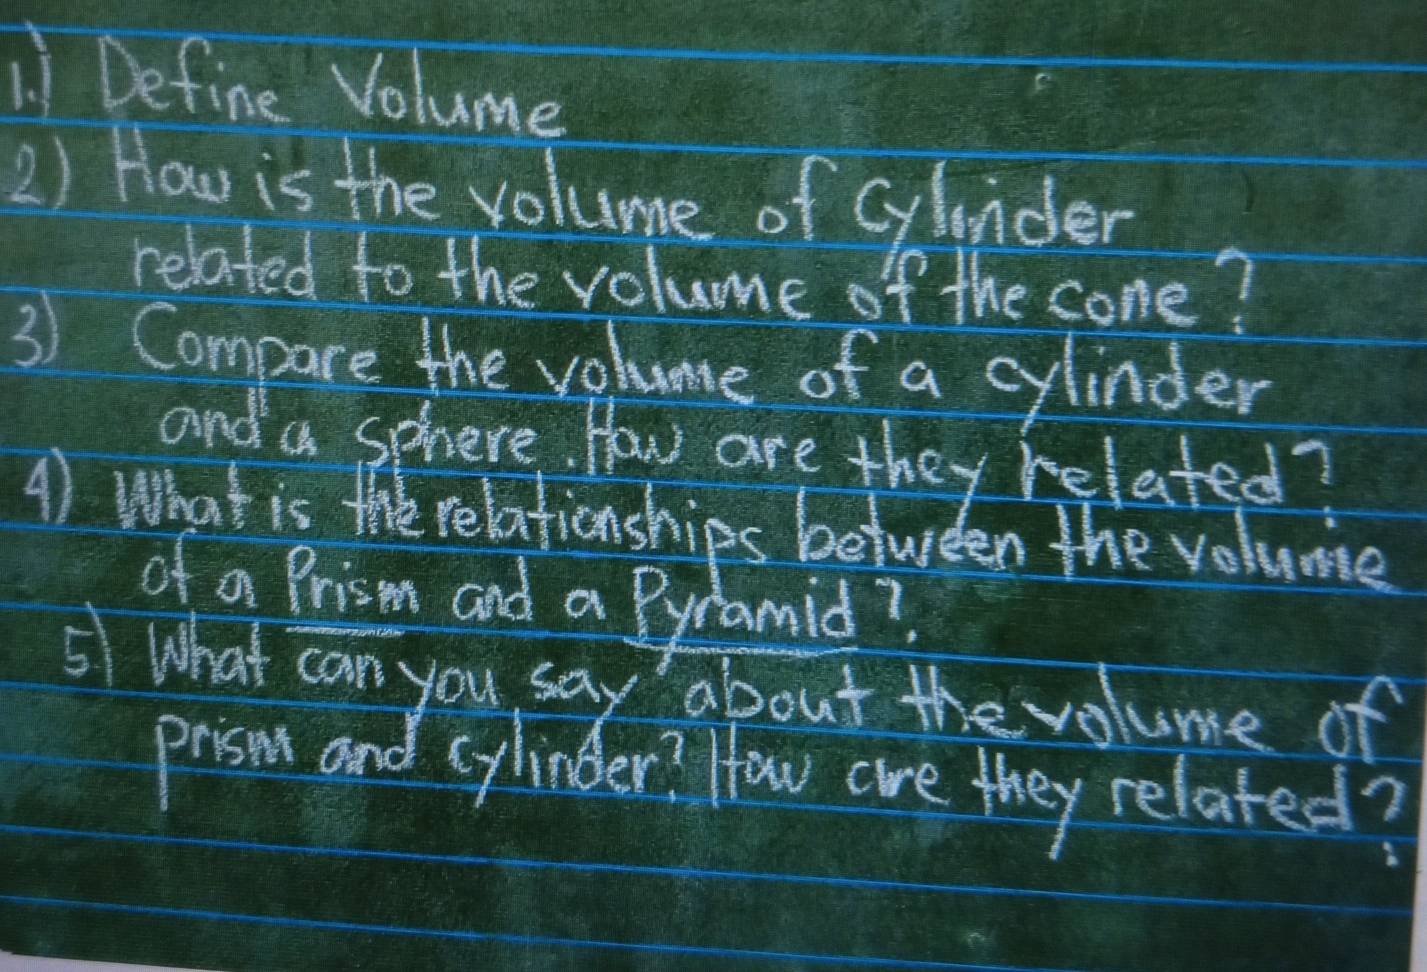 1.) Define Volume
2) How is the volume of Cylinder
related to the volume of the cone?
3) Compare the volume of a cylinder
and a sphere. How are they related?
4) What is the relationships between the volume
of a Prism and a Pyramid?
5) What can you say about the volume of
prism and cylinder? How are they related?